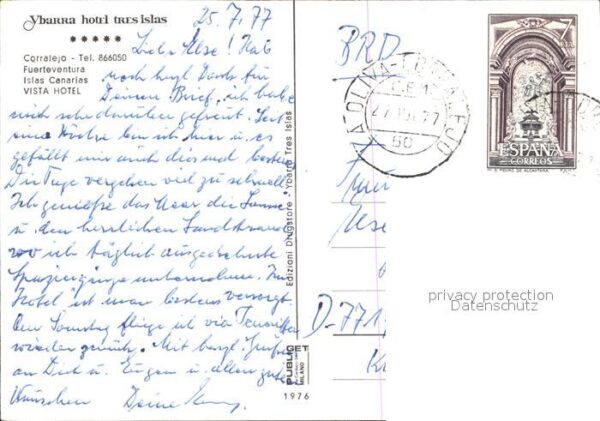 Ybarra hotel tres islas
★★★★★
Corralejo - Tel. 866050
Fuerteventura
Islas Canarias
VISTA HOTEL
25.7.77
Liebe Ilse!
noch herzl. Dank für
Deinen Brief, ich habe
mich sehr darüber gefreut. Seit
eine Woche bin ich hier u. es
gefällt mir auch diesmal bestens
Die Tage vergehen viel zu schnell
Ich genieße das Meer die Sonne
u. den herrlichen Sandstrand
wo ich täglich ausgedehnte
Spaziergänge unternehme. Im
Hotel ist man bestens versorgt.
Am Samstag fliege ich via Teneriffa
wieder zurück. Mit herzl. Grüßen
an Dich u. Eugen u. allen guten
Wünschen Deine
Edizioni Drugstore - Ybarra Tres Islas
PUBLI
MILANO
1976
BRD
LA OLIVA-CORRALEJO
27 JUL 77
7
PTA
ESPAÑA
CORREOS
M. S. PEDRO DE ALCANTARA
F.N.M.T.
D-771
privacy protection
Datenschutz